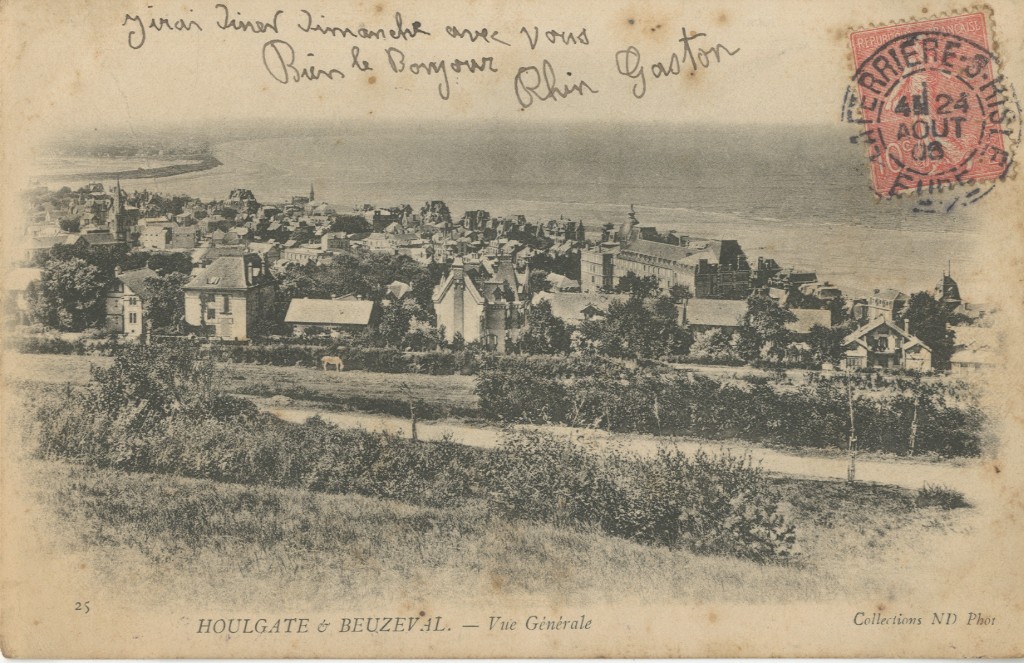 J'irai Diner Dimanche avec Vous
Bien le Bonjour
Rhin Gaston
REPUBLIQUE FRANÇAISE
LA FERRIERE-S-RISLE
4E 24
AOUT
03
EURE
10
25
HOULGATE & BEUZEVAL. — Vue Générale
Collections ND Phot